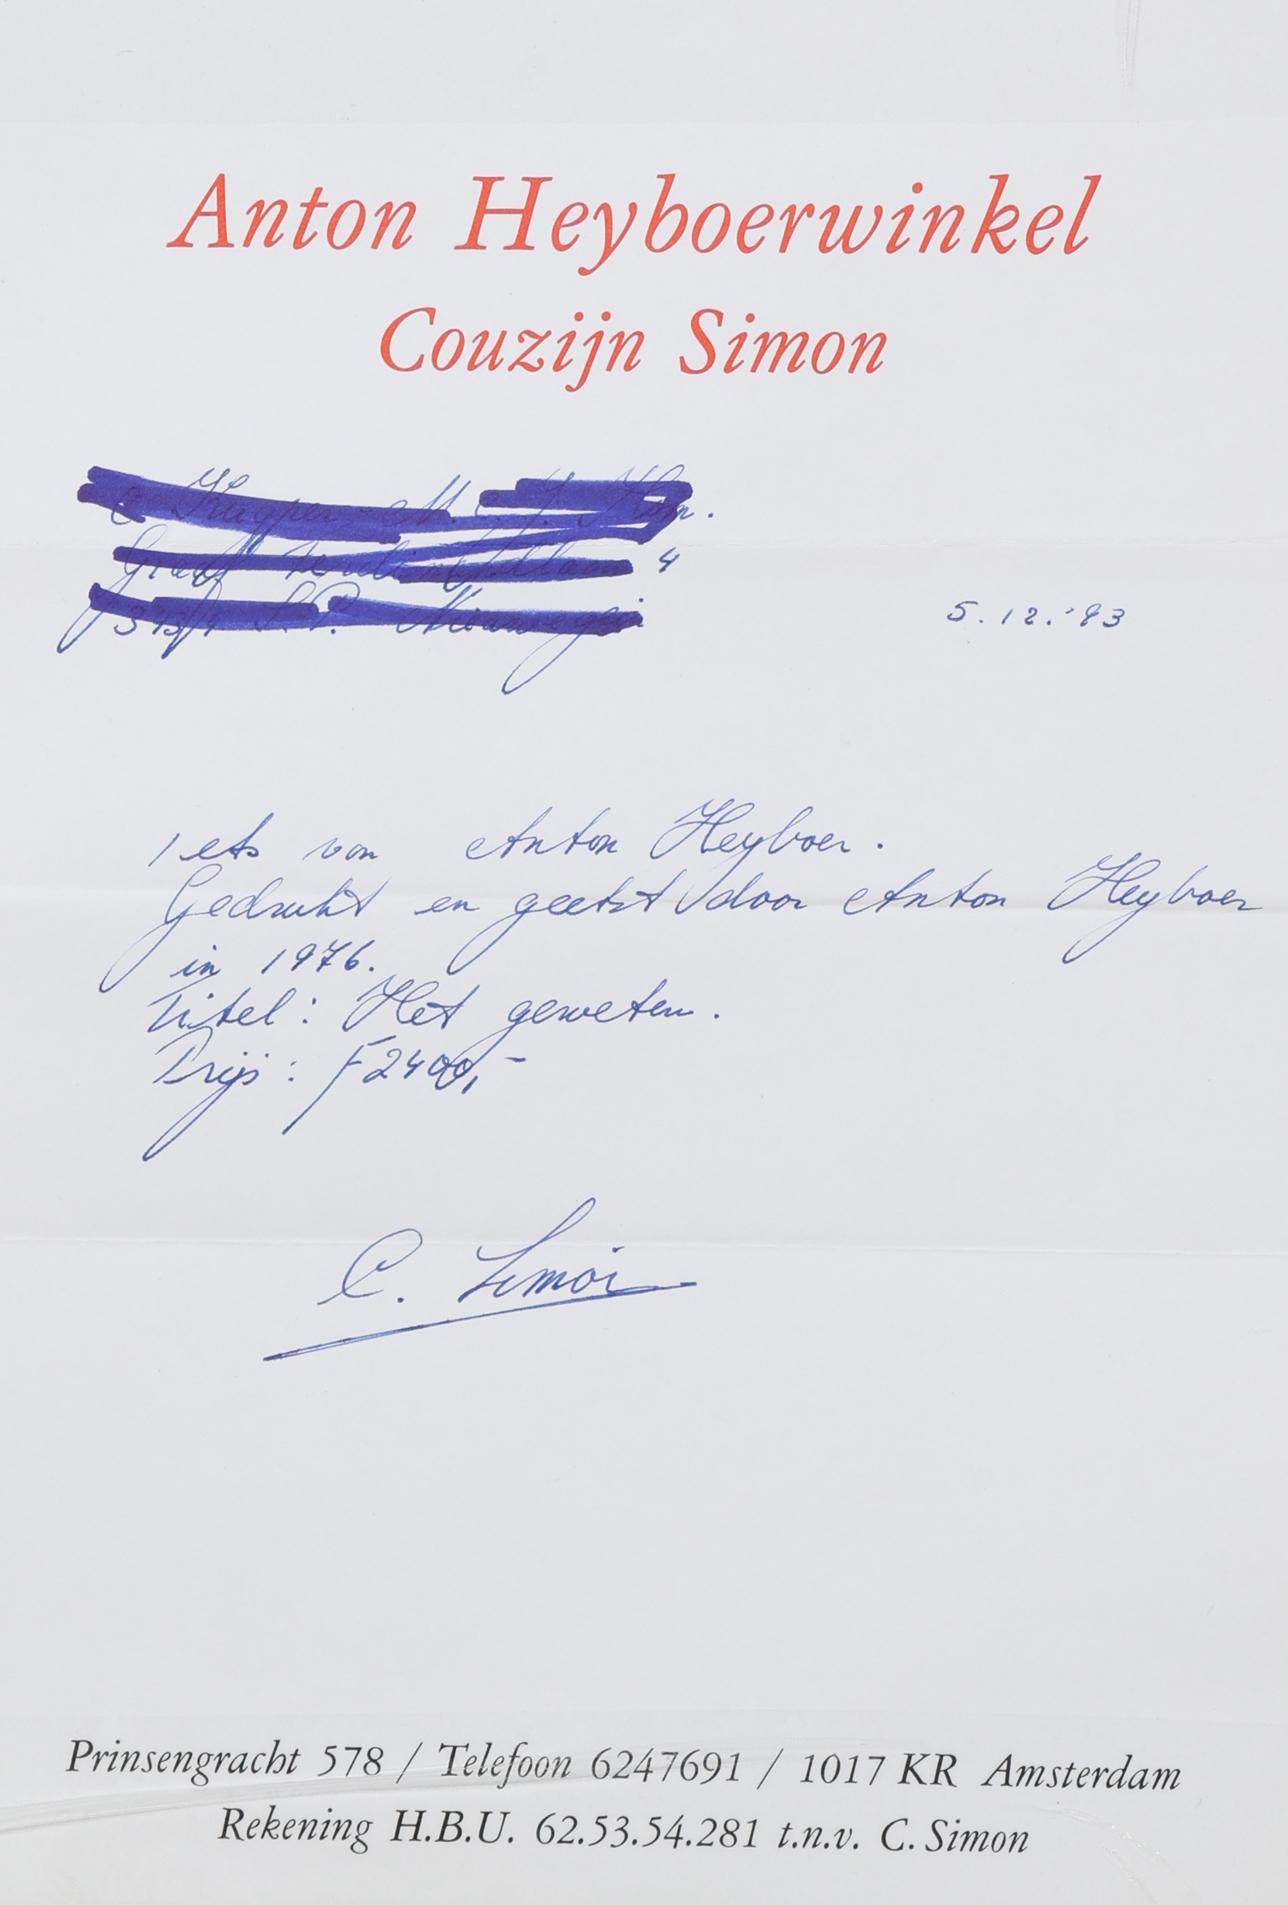 Anton Heyboerwinkel
Couzijn Simon
4
5.12.'93
1 ets van Anton Heyboer.
Gedrukt en geetst door Anton Heyboer
in 1976.
Titel: Het geweten.
Prijs: F 2400,-
C. Simon
Prinsengracht 578 / Telefoon 6247691 / 1017 KR Amsterdam
Rekening H.B.U. 62.53.54.281 t.n.v. C. Simon